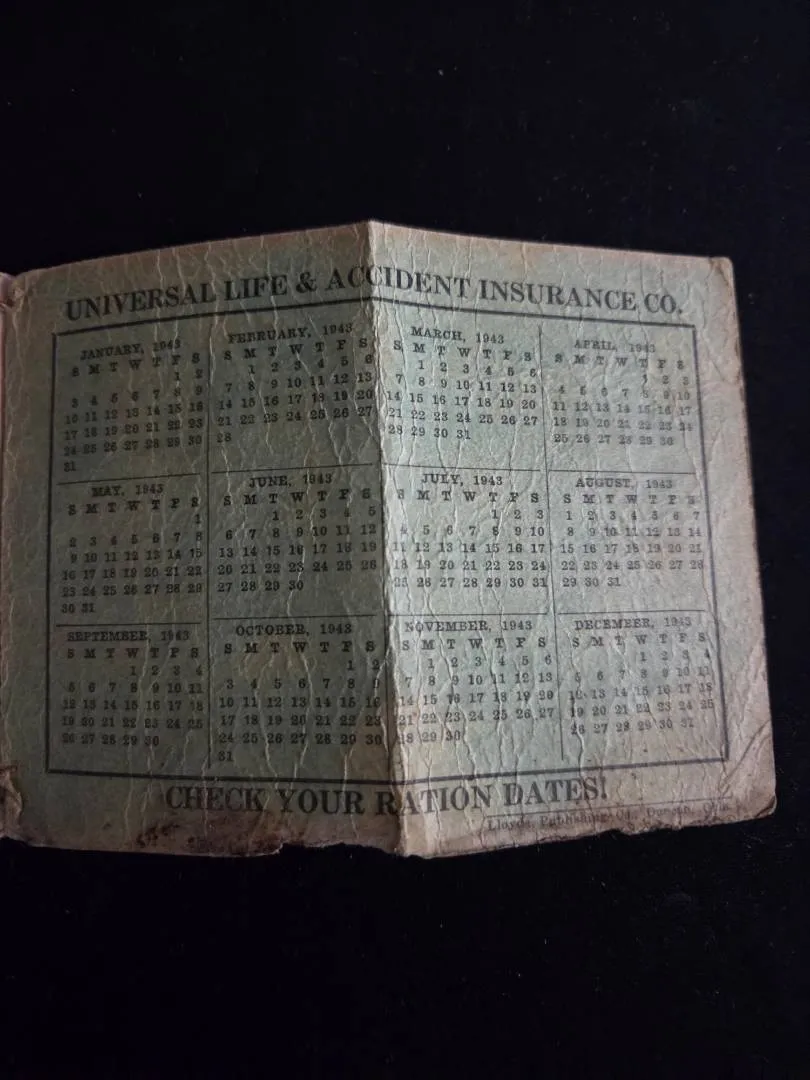 UNIVERSAL LIFE & ACCIDENT INSURANCE CO.
JANUARY, 1943
S M T W T F S
1 2
3 4 5 6 7 8 9
10 11 12 13 14 15 16
17 18 19 20 21 22 23
24 25 26 27 28 29 30
31
FEBRUARY, 1943
S M T W T F S
1 2 3 4 5 6
7 8 9 10 11 12 13
14 15 16 17 18 19 20
21 22 23 24 25 26 27
28
MARCH, 1943
S M T W T F S
1 2 3 4 5 6
7 8 9 10 11 12 13
14 15 16 17 18 19 20
21 22 23 24 25 26 27
28 29 30 31
APRIL, 1943
S M T W T F S
1 2 3
4 5 6 7 8 9 10
11 12 13 14 15 16 17
18 19 20 21 22 23 24
25 26 27 28 29 30
MAY, 1943
S M T W T F S
1
2 3 4 5 6 7 8
9 10 11 12 13 14 15
16 17 18 19 20 21 22
23 24 25 26 27 28 29
30 31
JUNE, 1943
S M T W T F S
1 2 3 4 5
6 7 8 9 10 11 12
13 14 15 16 17 18 19
20 21 22 23 24 25 26
27 28 29 30
JULY, 1943
S M T W T F S
1 2 3
4 5 6 7 8 9 10
11 12 13 14 15 16 17
18 19 20 21 22 23 24
25 26 27 28 29 30 31
AUGUST, 1943
S M T W T F S
1 2 3 4 5 6 7
8 9 10 11 12 13 14
15 16 17 18 19 20 21
22 23 24 25 26 27 28
29 30 31
SEPTEMBER, 1943
S M T W T F S
1 2 3 4
5 6 7 8 9 10 11
12 13 14 15 16 17 18
19 20 21 22 23 24 25
26 27 28 29 30
OCTOBER, 1943
S M T W T F S
1 2
3 4 5 6 7 8 9
10 11 12 13 14 15 16
17 18 19 20 21 22 23
24 25 26 27 28 29 30
31
NOVEMBER, 1943
S M T W T F S
1 2 3 4 5 6
7 8 9 10 11 12 13
14 15 16 17 18 19 20
21 22 23 24 25 26 27
28 29 30
DECEMBER, 1943
S M T W T F S
1 2 3 4
5 6 7 8 9 10 11
12 13 14 15 16 17 18
19 20 21 22 23 24 25
26 27 28 29 30 31
CHECK YOUR RATION DATES!
Lloyds Publishing